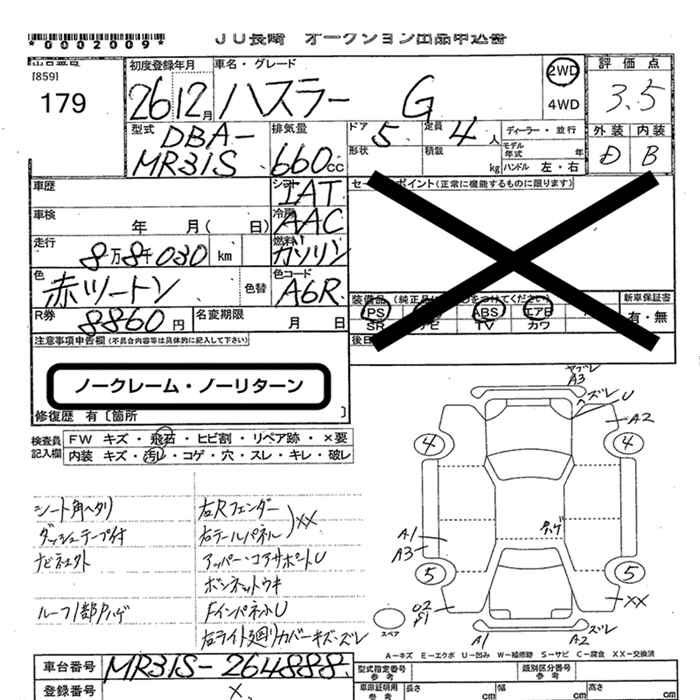 *0002009*
JU長崎 オークション出品申込書
[859]
179
初度登録年月
26 12月
車名・グレード
ハスラー G
2WD
4WD
評価点
3.5
外装 内装
D B
型式
DBA-
MR31S
排気量
660cc
ドア 5
定員 4人
ディーラー・並行
形状
積載 kg
モデル年式 年
ハンドル 左・右
車歴
シフト IAT
車検 年 月( 日)
冷房 AAC
走行 8万8千030 km
燃料 ガソリン
色 赤ツートン 色替
色コード A6R
R券 8860円
名変期限 月 日
セールスポイント(正常に機能するものに限ります)
新車保証書
有・無
PS ABS エアB
SR ナビ TV カワ
注意事項申告欄(不具合内容等は具体的に記入して下さい)
ノークレーム・ノーリターン
修復歴 有〔箇所 〕
検査員記入欄
FW キズ・飛石・ヒビ割・リペア跡・×要
内装 キズ・汚レ・コゲ・穴・スレ・キレ・破レ
シート角ヘタリ
ダッシュテープ付
ナビネェクト
ルーフ1部ハゲ
右Rフェンダー
右テールパネル
XX
アッパー・コアサポートU
ボンネットウキ
FインパネルU
右ライト廻りカバーキズ・ズレ
A3
ズレ
U
A2
4
4
ハゲ
A1
A3
5
5
U2
XX
スペア
A1
A2
ズレ
A－キズ E－エクボ U－凹み W－補修跡 S－サビ C－腐食 XX－交換済
車台番号 MR31S-264888
登録番号 ×
型式指定番号 参考
類別区分番号 参考
車庫証明用 参考
長さ cm
幅 cm
高さ cm